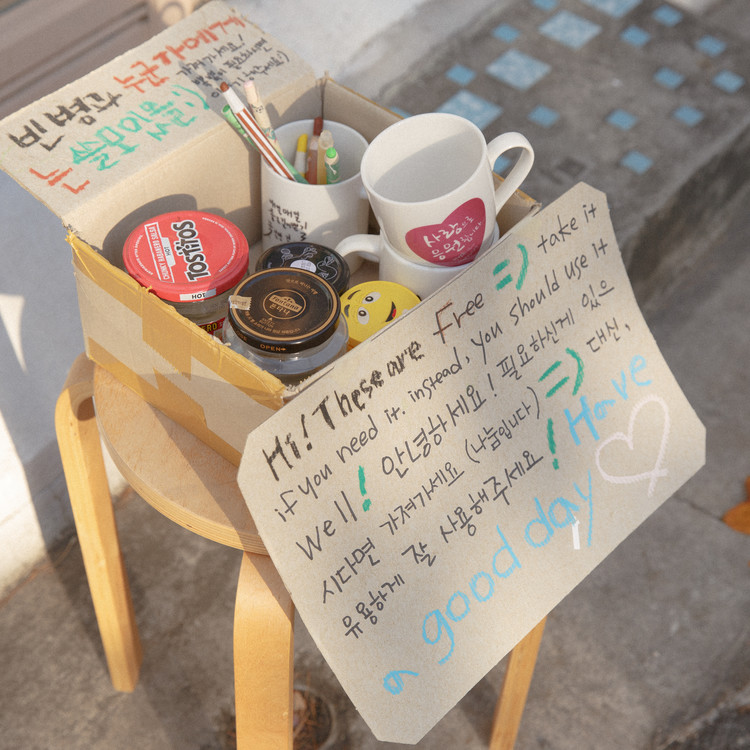 빈병과 누군가에게
는 쓸모 있을
TOSTITOS
CHUNKY
HOT
OPEN
사랑으로
응원합니다
Hi! These are Free =) take it
if you need it. instead, you should use it
Well! 안녕하세요! 필요하신게 있으
시다면 가져가세요 (나눔입니다) =) 대신,
유용하게 잘 사용해주세요! Have
a good day